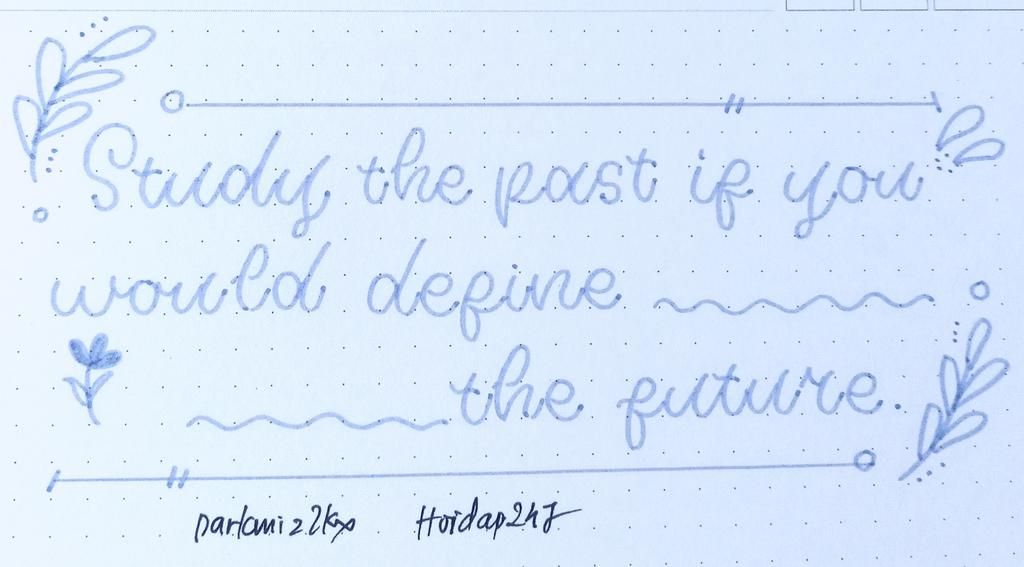 Study the past if you
would define
the future.
Hoidap247